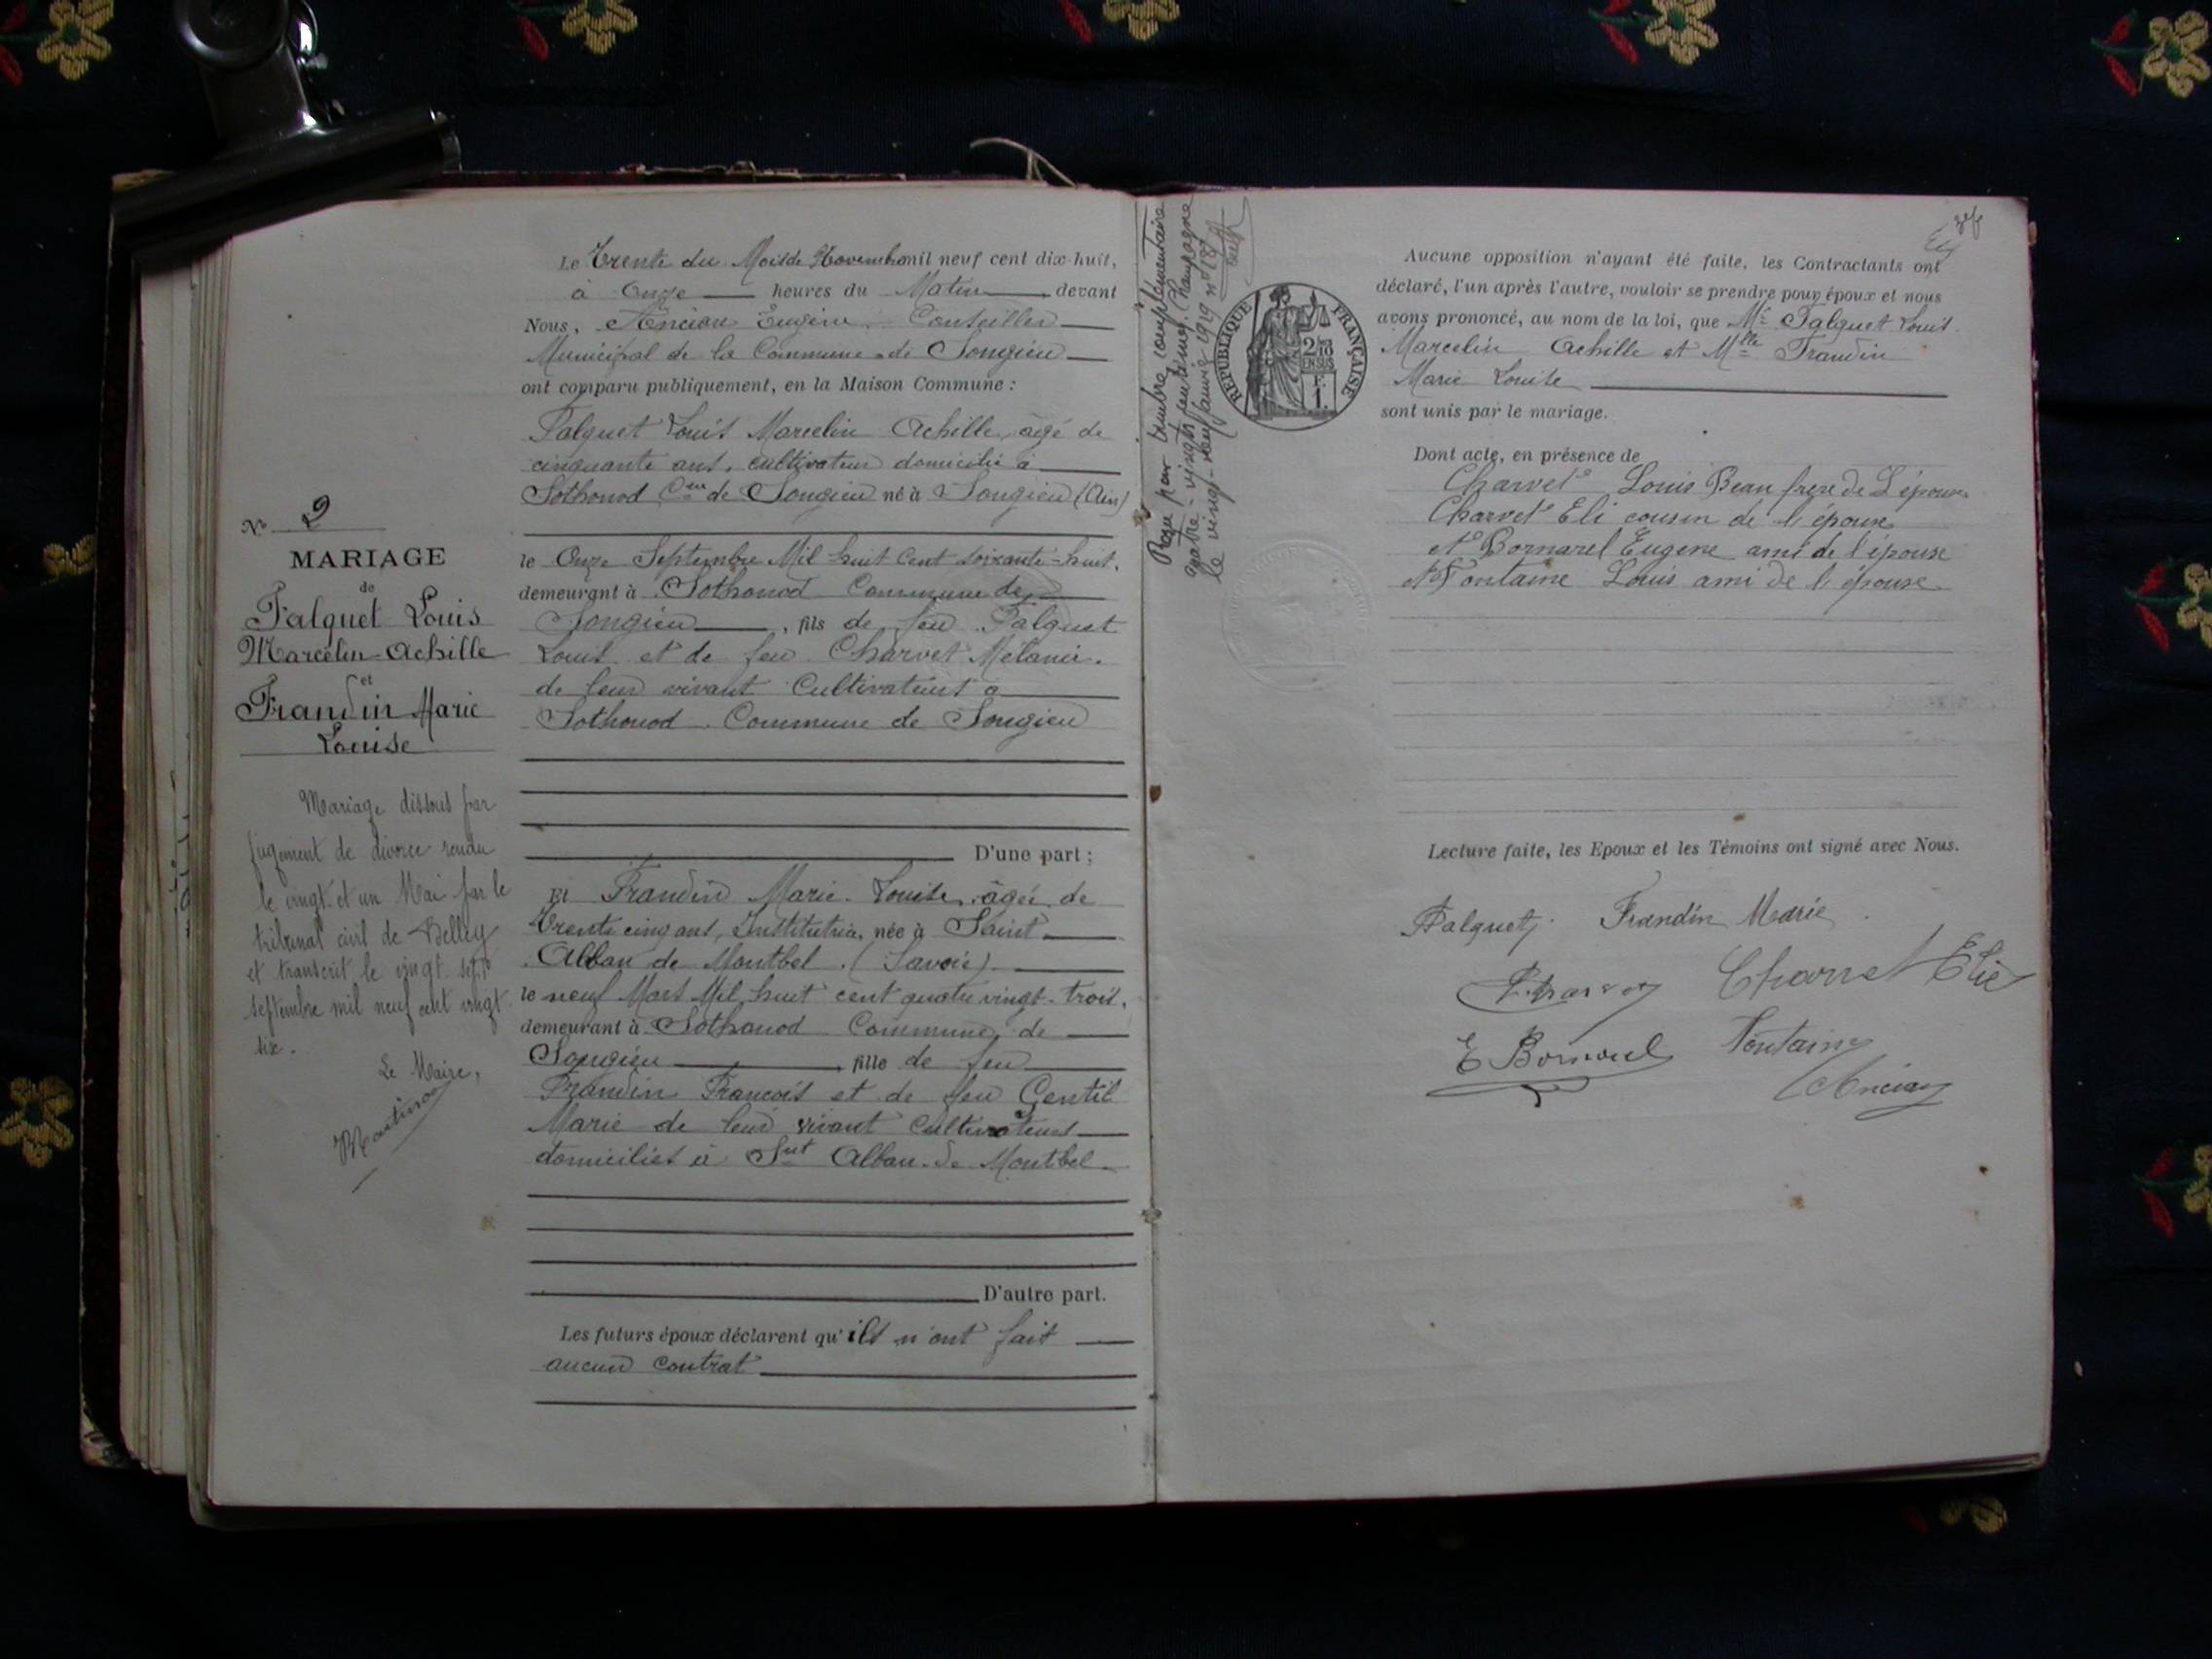 Le Trente du Mois de Novembre mil neuf cent dix-huit,
à Onze heures du Matin devant
Nous, Ancian Eugène, Conseiller
Municipal de la Commune de Songieu
ont comparu publiquement, en la Maison Commune :
Falquet Louis Marcelin Achille, âgé de
cinquante ans, cultivateur domicilié à
Sothonod Cne de Songieu né à Songieu (Ain)
le Onze Septembre Mil huit Cent soixante-huit,
demeurant à Sothonod Commune de
Songieu, fils de feu Falquet
Louis et de feu Charvet Mélanie.
de leur vivant Cultivateurs à
Sothonod Commune de Songieu
D'une part ;
Et Frandin Marie-Louise, âgée de
Trente cinq ans, Institutrice, née à Saint
Alban de Montbel. (Savoie)
le neuf Mars Mil huit cent quatre vingt-trois,
demeurant à Sothonod Commune de
Songieu, fille de feu
Frandin François et de feu Gentil
Marie de leur vivant Cultivateurs
domiciliés à Snt Alban-de Montbel
D'autre part.
Les futurs époux déclarent qu'ils n'ont fait
aucun contrat
No 9
MARIAGE
de
Falquet Louis
Marcelin-Achille
et
Frandin Marie
Louise
Mariage dissous par
jugement de divorce rendu
le vingt et un Mai par le
tribunal civil de Belley
et transcrit le vingt sept
septembre mil neuf cent vingt
six.
Le Maire,
Reçu pour timbre complémentaire
quatre-vingts centimes. Champagne
le vingt-neuf janvier 1919 no 187
RÉPUBLIQUE FRANÇAISE
2/10
EN SUS
F.
1.
Aucune opposition n'ayant été faite, les Contractants ont
déclaré, l'un après l'autre, vouloir se prendre pour époux et nous
avons prononcé, au nom de la loi, que Mr Falquet Louis
Marcelin Achille et Mlle Frandin
Marie Louise
sont unis par le mariage.
Dont acte, en présence de
Charvet Louis Beau frere de L'époux
Charvet Eli cousin de l'épouse
Bornarel Eugene ami de l'épouse
Fontaine Louis ami de l'épouse
Lecture faite, les Epoux et les Témoins ont signé avec Nous.
Falquet Frandin Marie
Charvet Elie
E Bornarel Fontaine
Ancian